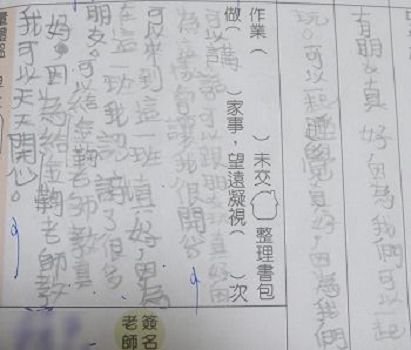 有朋友真好因為我們可以一起
玩。可以一起上學真好,因為我們
作業( )未交( )整理書包
做( )家事,望遠凝視( )次
可以講話可以跟朋友玩真好因
為會讓我很開心。
可以來到這一班真好,因為
在這一班我認識了很多
朋友。可以給金鞠老師教真
好,因為給金鞠老師教
我可以天天開心。
簽名
老師